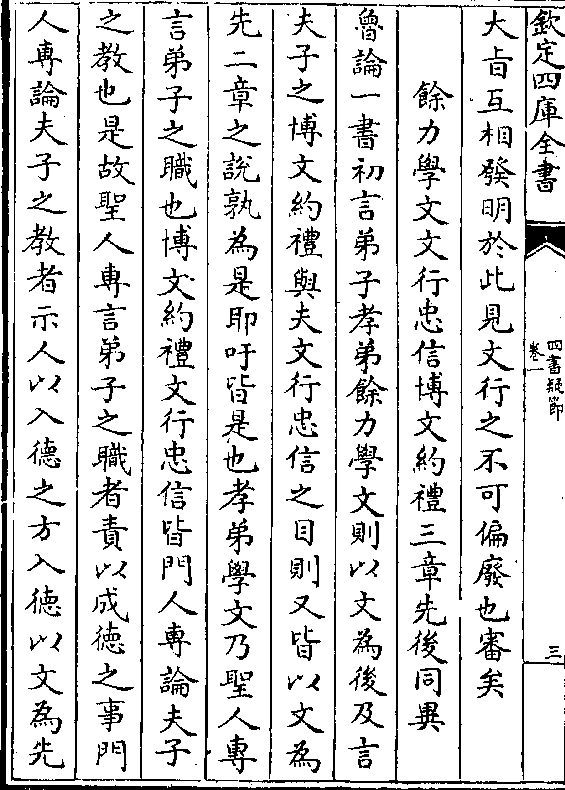 欽定四庫全書
四書疑節
卷一
三
大旨互相發明於此見文行之不可偏廢也審矣
餘力學文文行忠信博文約禮三章先後同異
魯論一書初言弟子孝弟餘力學文則以文為後及言
夫子之博文約禮與夫文行忠信之目則又皆以文為
先二章之說孰為是耶吁皆是也孝弟學文乃聖人專
言弟子之職也博文約禮文行忠信皆門人專論夫子
之教也是故聖人專言弟子之職者責以成德之事門
人專論夫子之教者示人以入德之方入德以文為先